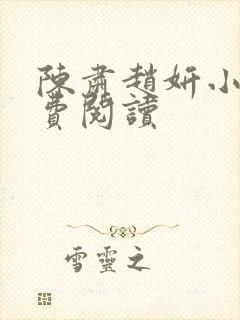 陳肅趙妍小
費閱讀
雪靈之